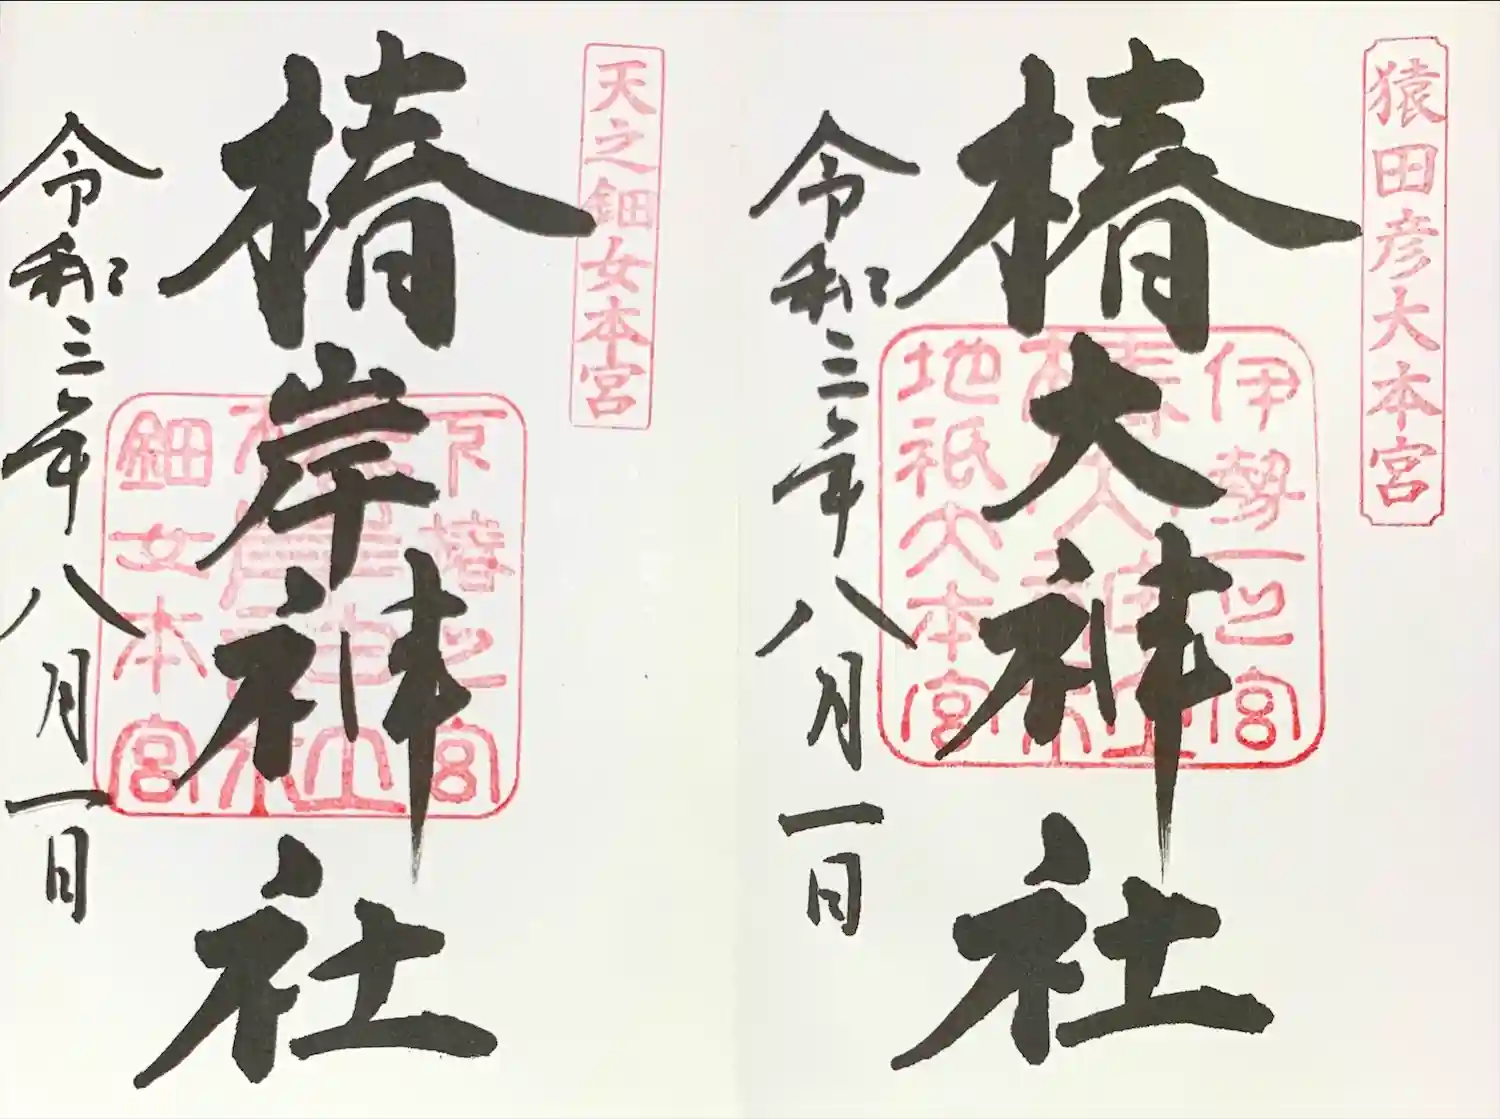 猿田彦大本宮
椿大神社
伊勢一之宮
椿大神社
地祇大本宮
令和三年八月一日
天之鈿女本宮
椿岸神社
下椿之宮
椿岸神社
鈿女本宮
令和三年八月一日